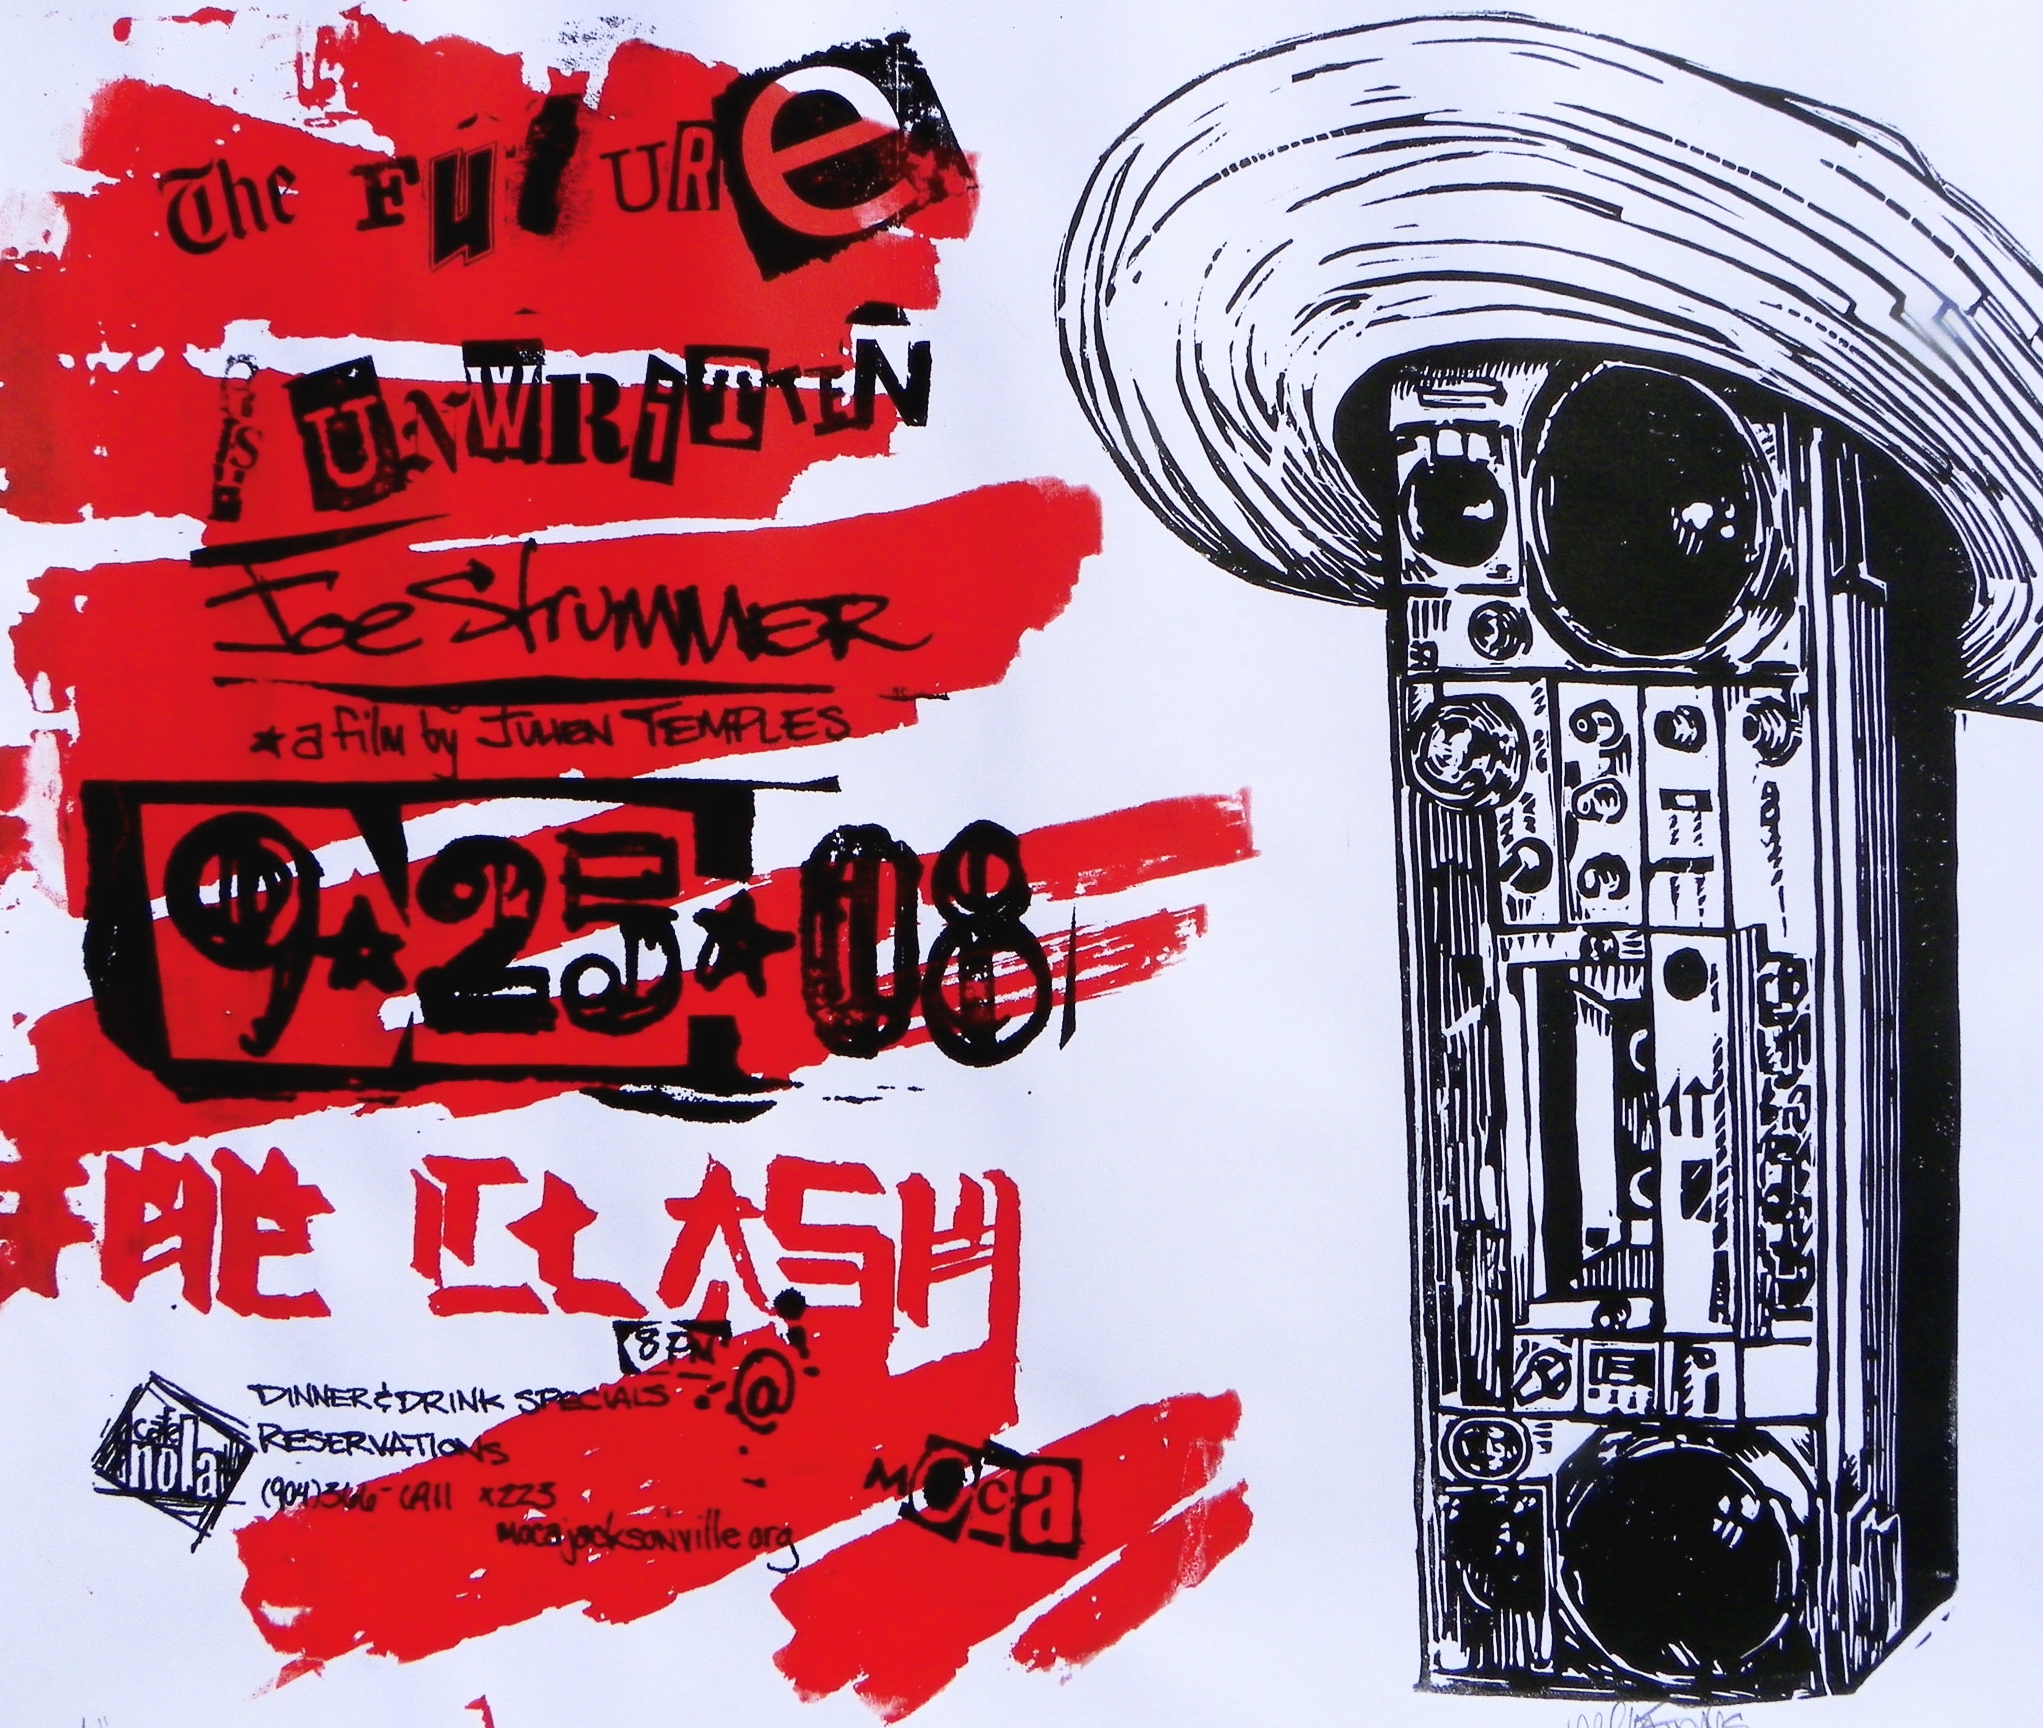 The FuTURe
is UNWRiTTEN
Joe Strummer
*a film by Julien Temples
9★25★08
THE CLASH
8PM
@
cafe nola
Dinner & Drink Specials
Reservations
(904)366-CAll x223
mocajacksonville.org
MOca